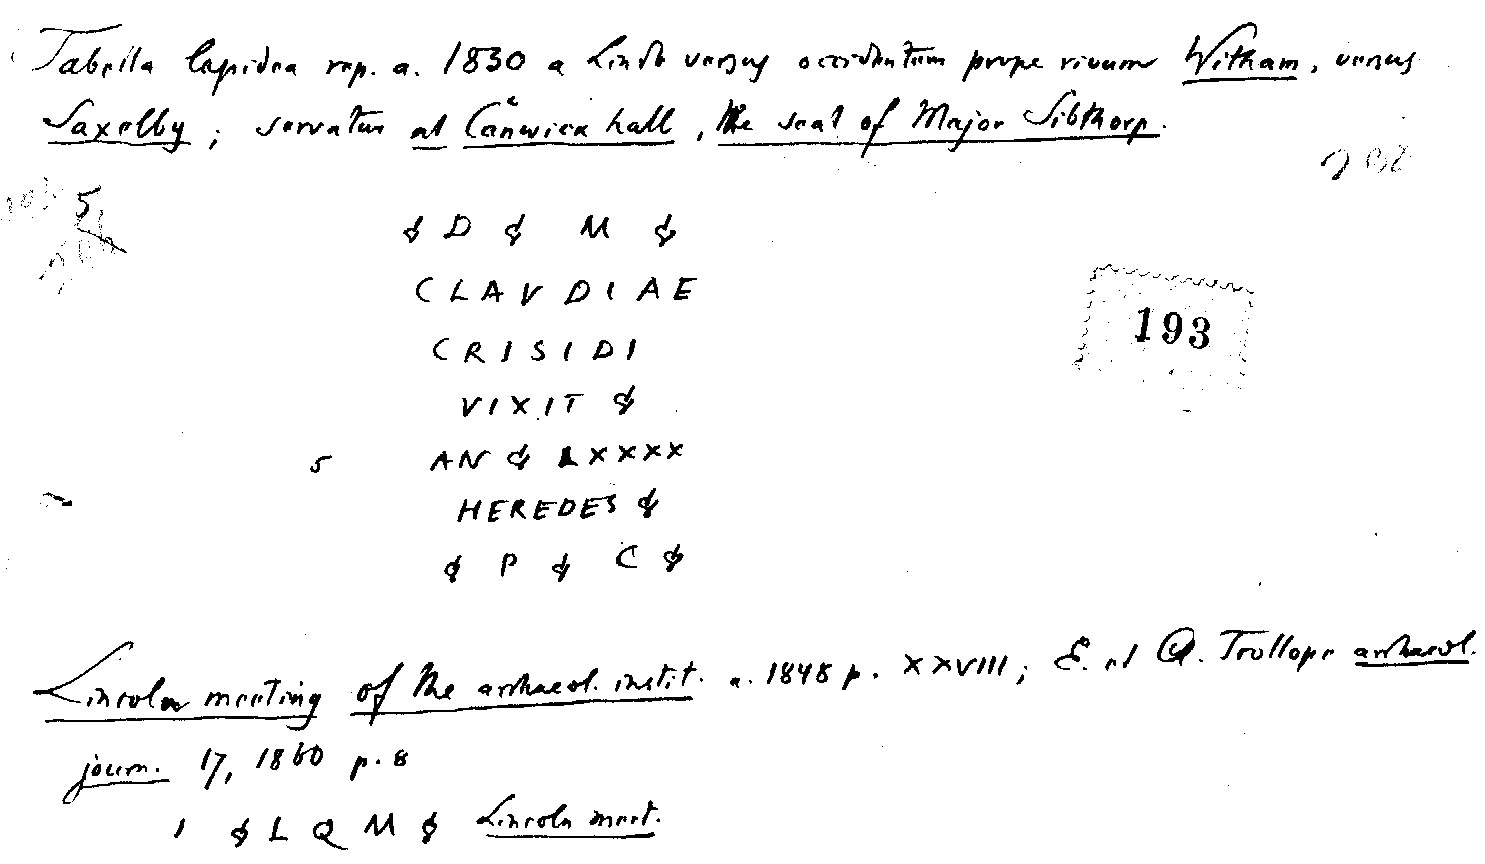 Tabella lapidea rep. a. 1830 a Lindo versus occidentem prope rivum Witham, versus
Saxelby; servatur at Canwick hall, the seat of Major Sibthorp.
5
❧ D ❧ M ❧
CLAVDIAE
CRISIDI
193
VIXIT ❧
5 AN ❧ LXXXX
HEREDES ❧
❧ P ❧ C ❧
Lincoln meeting of the archaeol. instit. a. 1848 p. XXVIII; E. et A. Trollope archaeol.
journ. 17, 1860 p. 8
1 ❧ L Q M ❧ Lincoln meet.